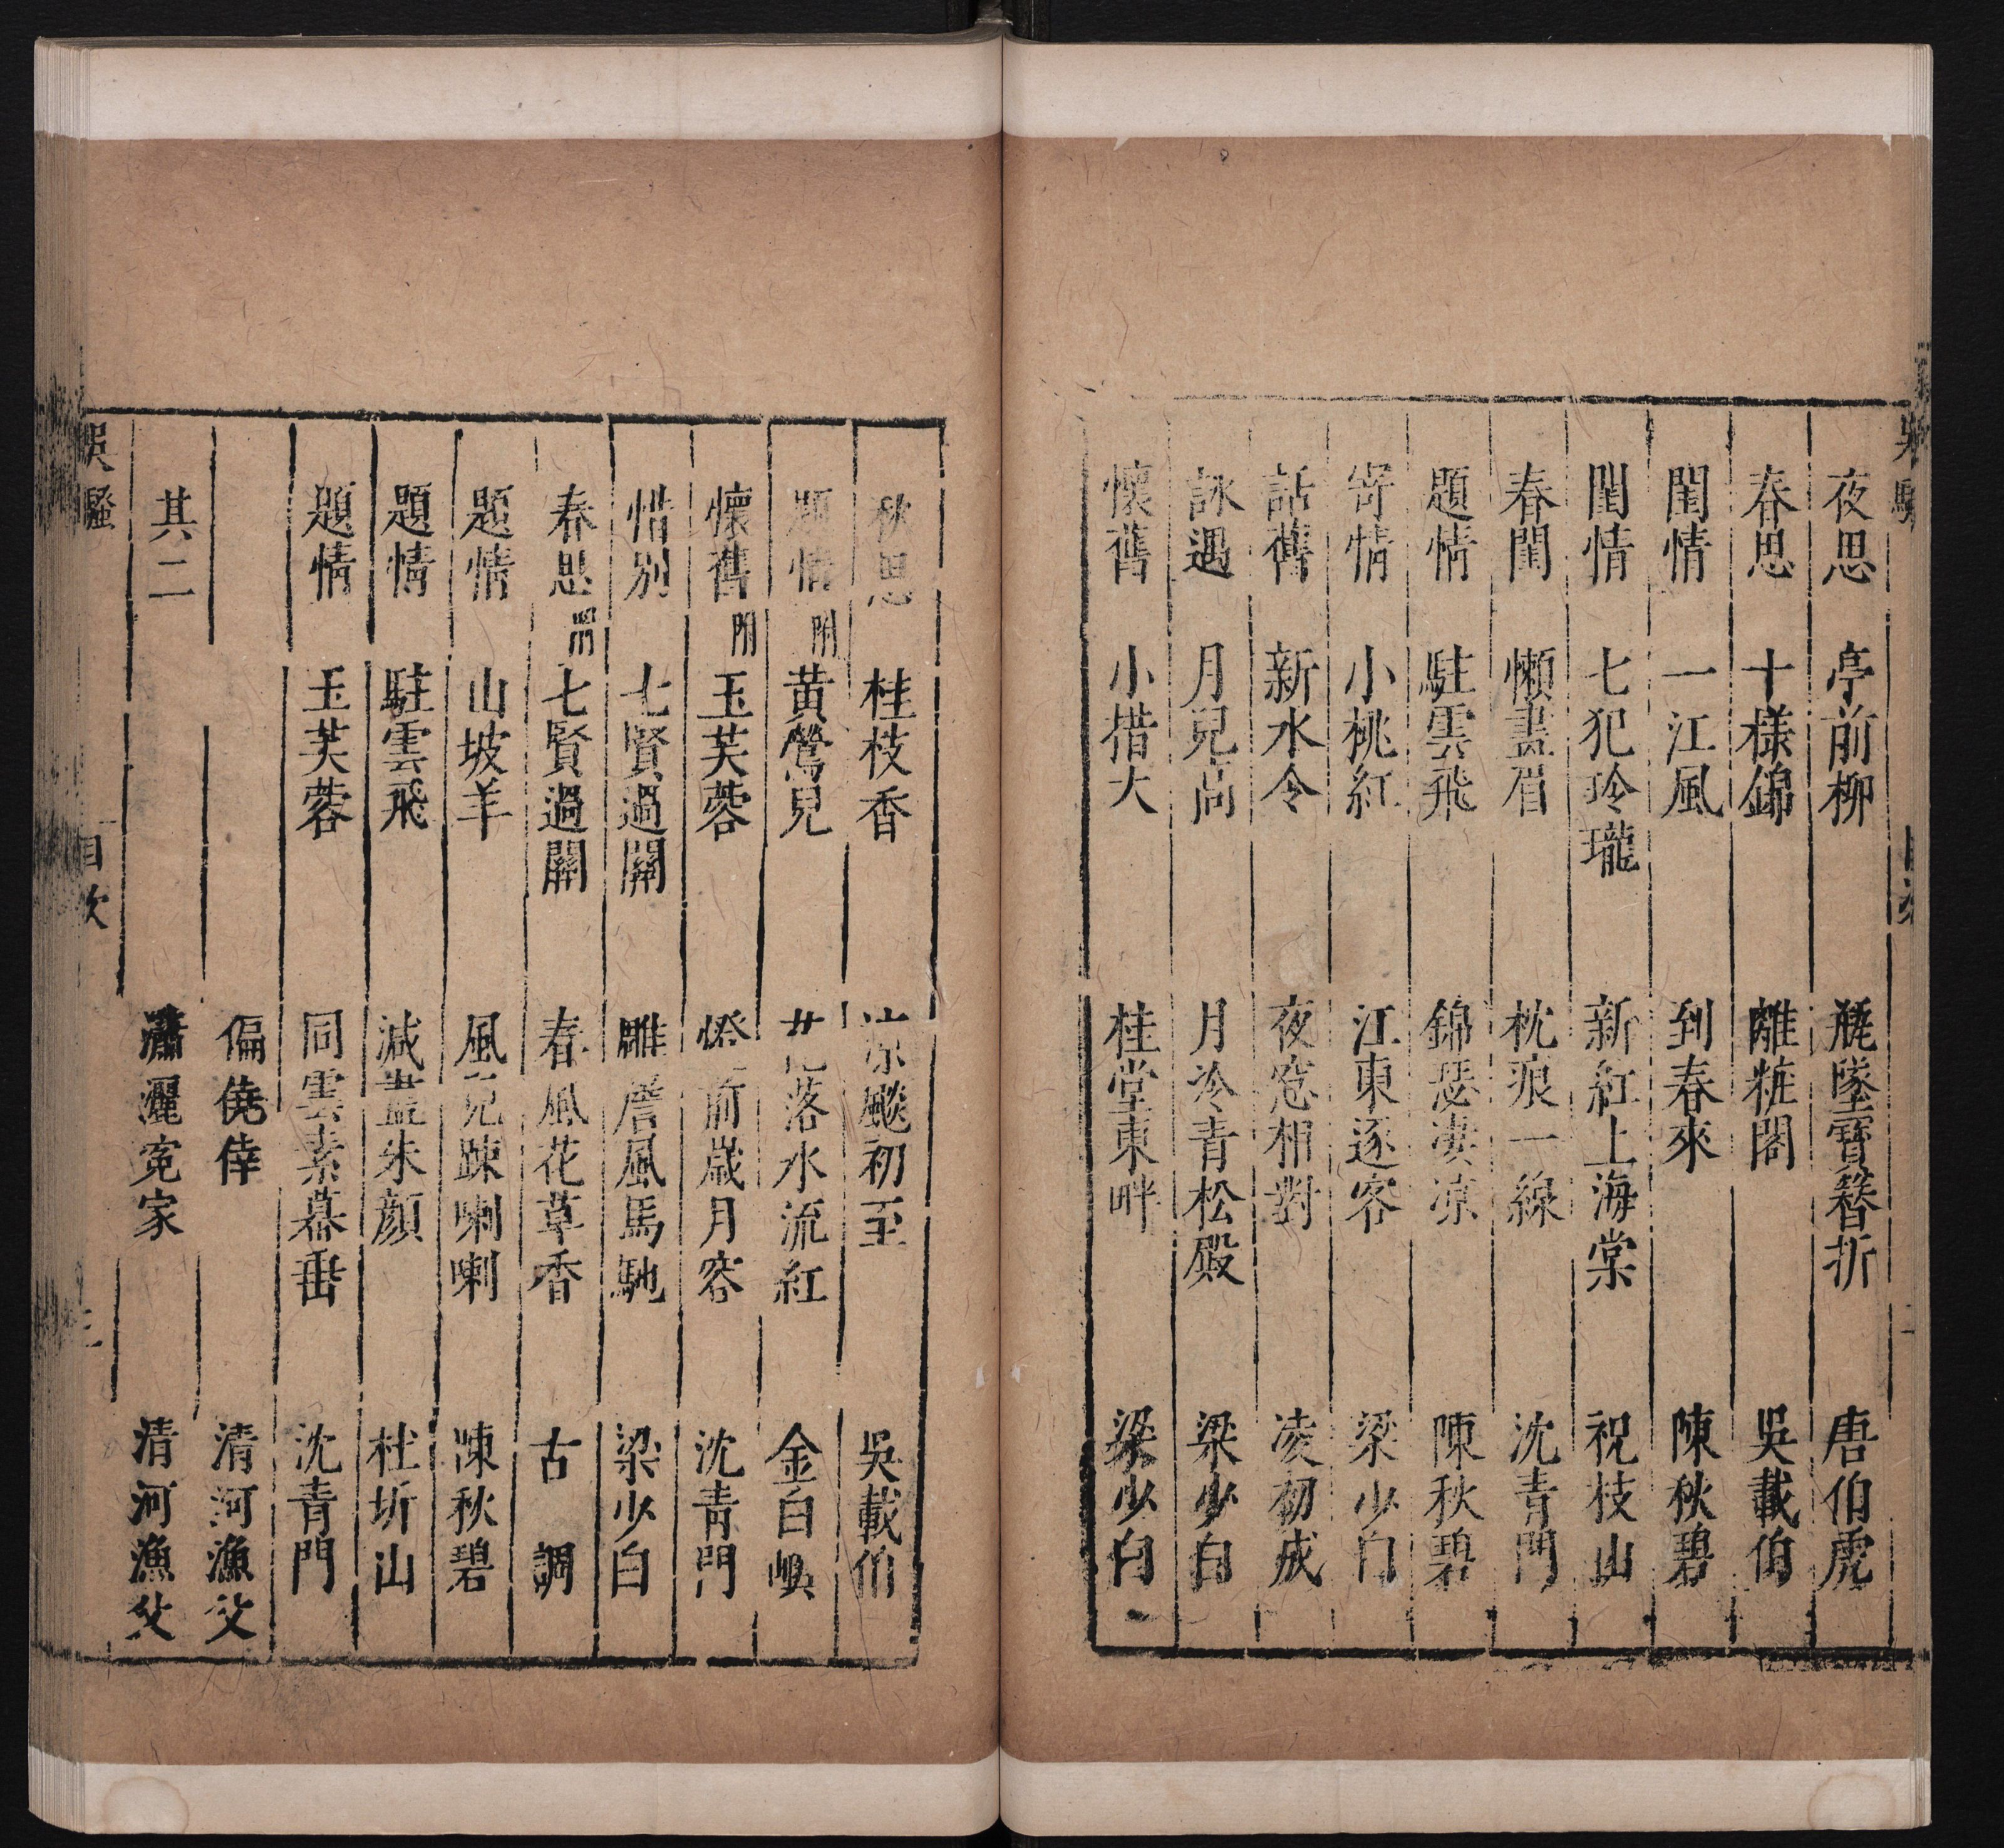 夜思 亭前柳 甁墜寶簪折 唐伯虎
春思 十樣錦 離粧閣 吳載伯
閨情 一江風 到春來 陳秋碧
閨情 七犯玲瓏 新紅上海棠 祝枝山
春閨 懶畫眉 枕痕一線 沈青門
題情 駐雲飛 錦瑟凄凉 陳秋碧
寄情 小桃紅 江東逐客 梁少白
話舊 新水令 夜窓相對 凌初成
詠遇 月兒高 月冷青松殿 梁少白
懷舊 小措大 桂堂東畔 梁少白
秋思 桂枝香 凉颷初至 吳載伯
題情 附 黃鶯兒 花落水流紅 金白嶼
懷舊 附 玉芙蓉 燈前歲月容 沈青門
惜別 七賢過關 雕簷風馬馳 梁少白
春思 附 七賢過關 春風花草香 古調
題情 山坡羊 風兒踈喇喇 陳秋碧
題情 駐雲飛 減盡朱顏 杜圻山
題情 玉芙蓉 同雲素幕垂 沈青門
偏僥倖 清河漁父
其二 瀟灑寃家 清河漁父
吳騷 目次 三